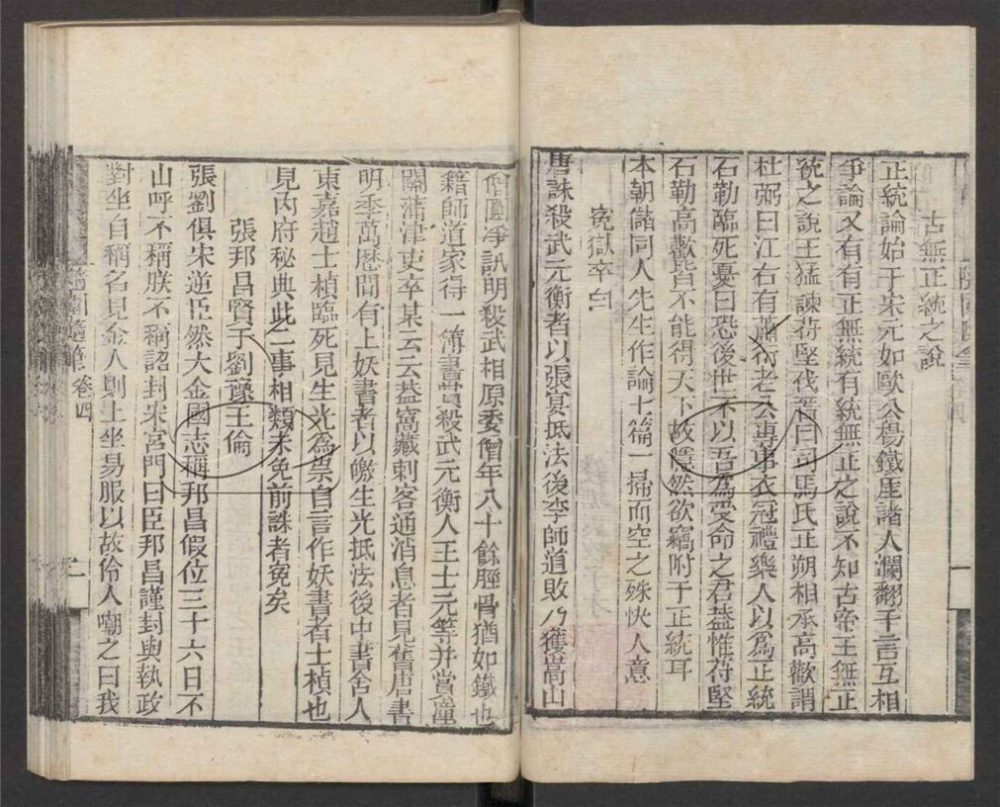 古無正統之說
正統論始于宋元如歐公楊鐵厓諸人瀾翻千言互相
爭論又有有正無統有統無正之說不知古帝王無正
統之說王猛諫苻堅伐晉曰司馬氏正朔相承高歡謂
杜弼曰江右有蕭衍老公專事衣冠禮樂人以為正統
石勒臨死憂曰恐後世不以吾為受命之君蓋惟苻堅
石勒高歡皆不能得天下故隱然欲竊附于正統耳
本朝儲同人先生作論七篇一掃而空之殊快人意
冤獄卒白
唐誅殺武元衡者以張晏抵法後李師道敗乃獲嵩山
僧圓凈訊明殺武相原委僧年八十餘脛骨猶如鐵也
籍師道家得一簿書賞殺武元衡人王士元等并賞潼
關蒲津吏卒某云云蓋窩藏刺客通消息者見舊唐書
明季萬歷間有上妖書者以皦生光抵法後中書舍人
東嘉趙士楨臨死見生光為祟自言作妖書者士楨也
見內府秘典此二事相類未免前誅者冤矣
張邦昌賢于劉豫王倫
張劉俱宋逆臣然大金國志稱邦昌假位三十六日不
山呼不稱朕不稱詔封宋宮門曰臣邦昌謹封與執政
對坐自稱名見金人則上坐易服以故伶人嘲之曰我
隨園隨筆 卷四